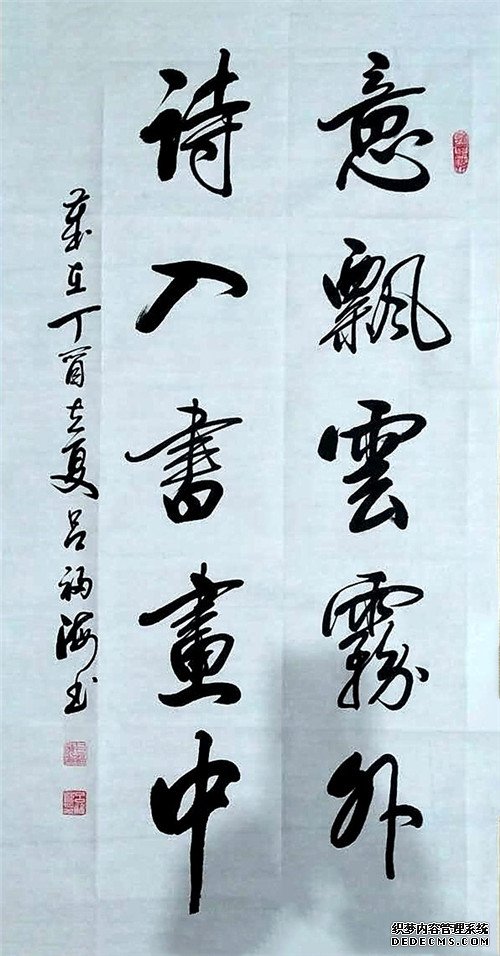 意飘雲霧外
诗入書畫中
歲在丁酉立夏吕福海书
织梦内容管理系统
DEDECMS.COM